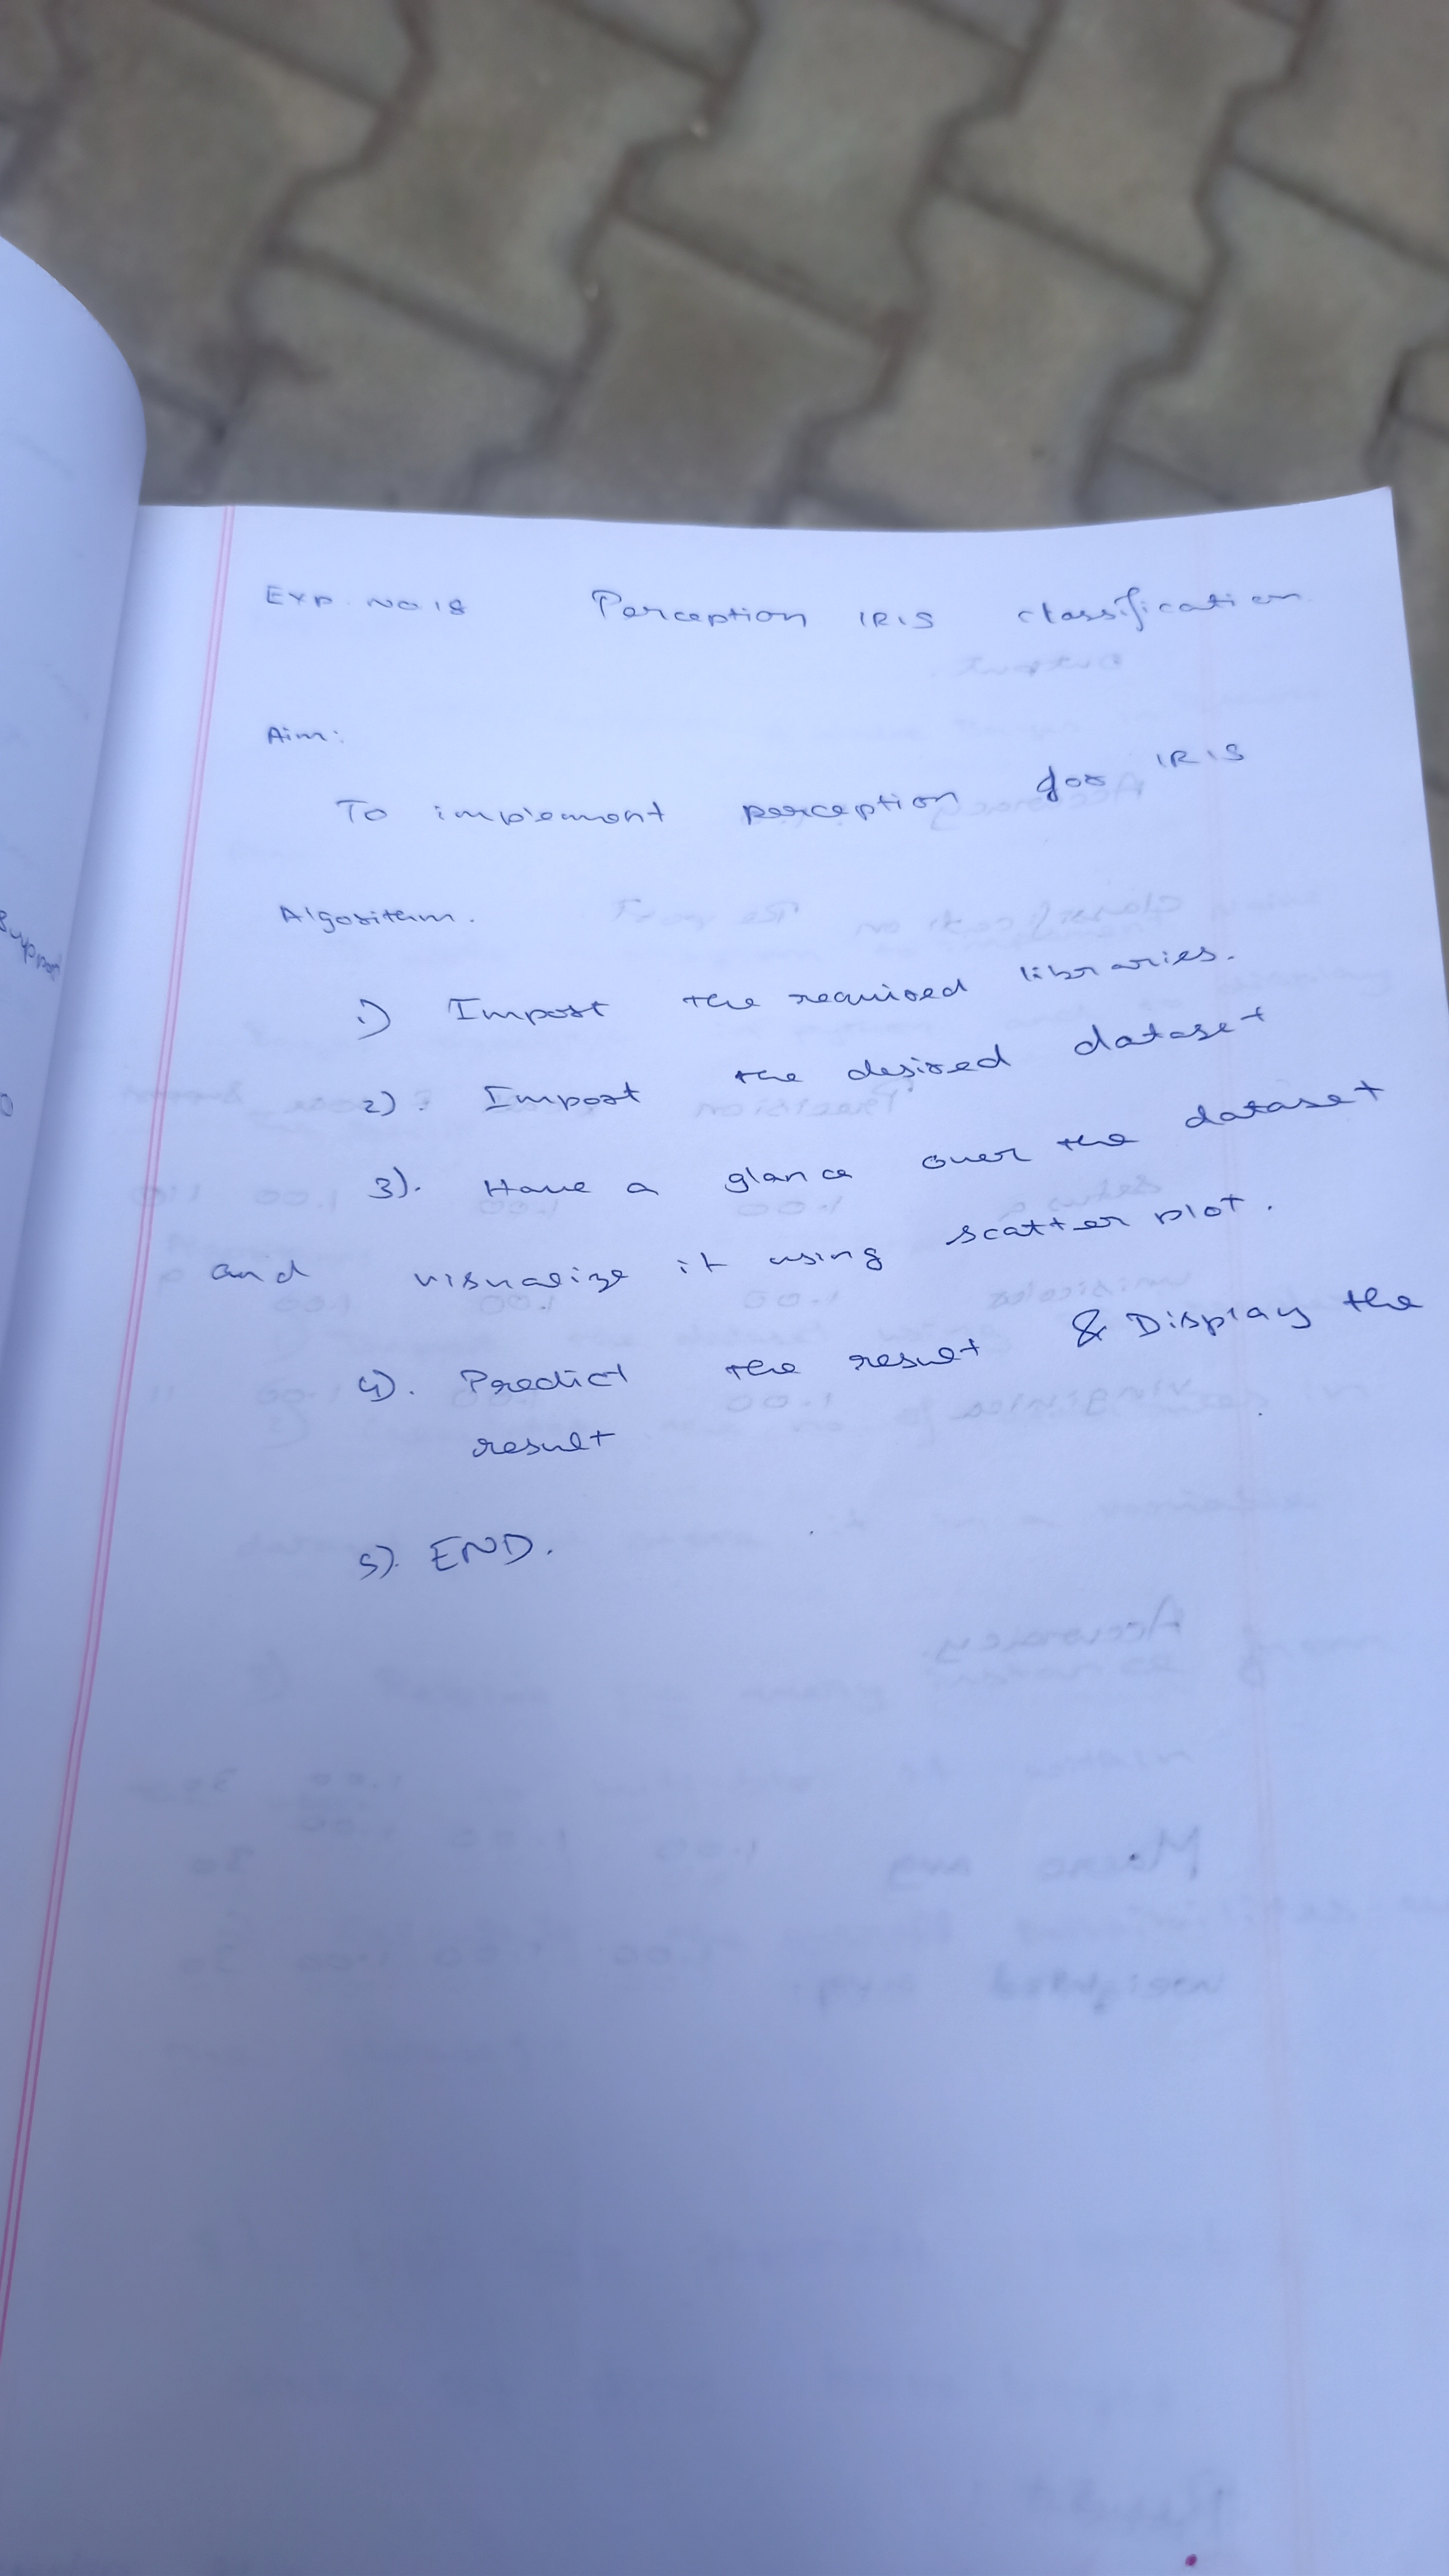 Exp. No 18 Perception IRIS classification
Aim:
To implement perception for IRIS
Algorithm.
1) Import the required libraries.
2). Import the desired dataset
3). Have a glance over the dataset
and visualize it using scatter plot.
4). Predict the result & Display the
result
5). END.
Support